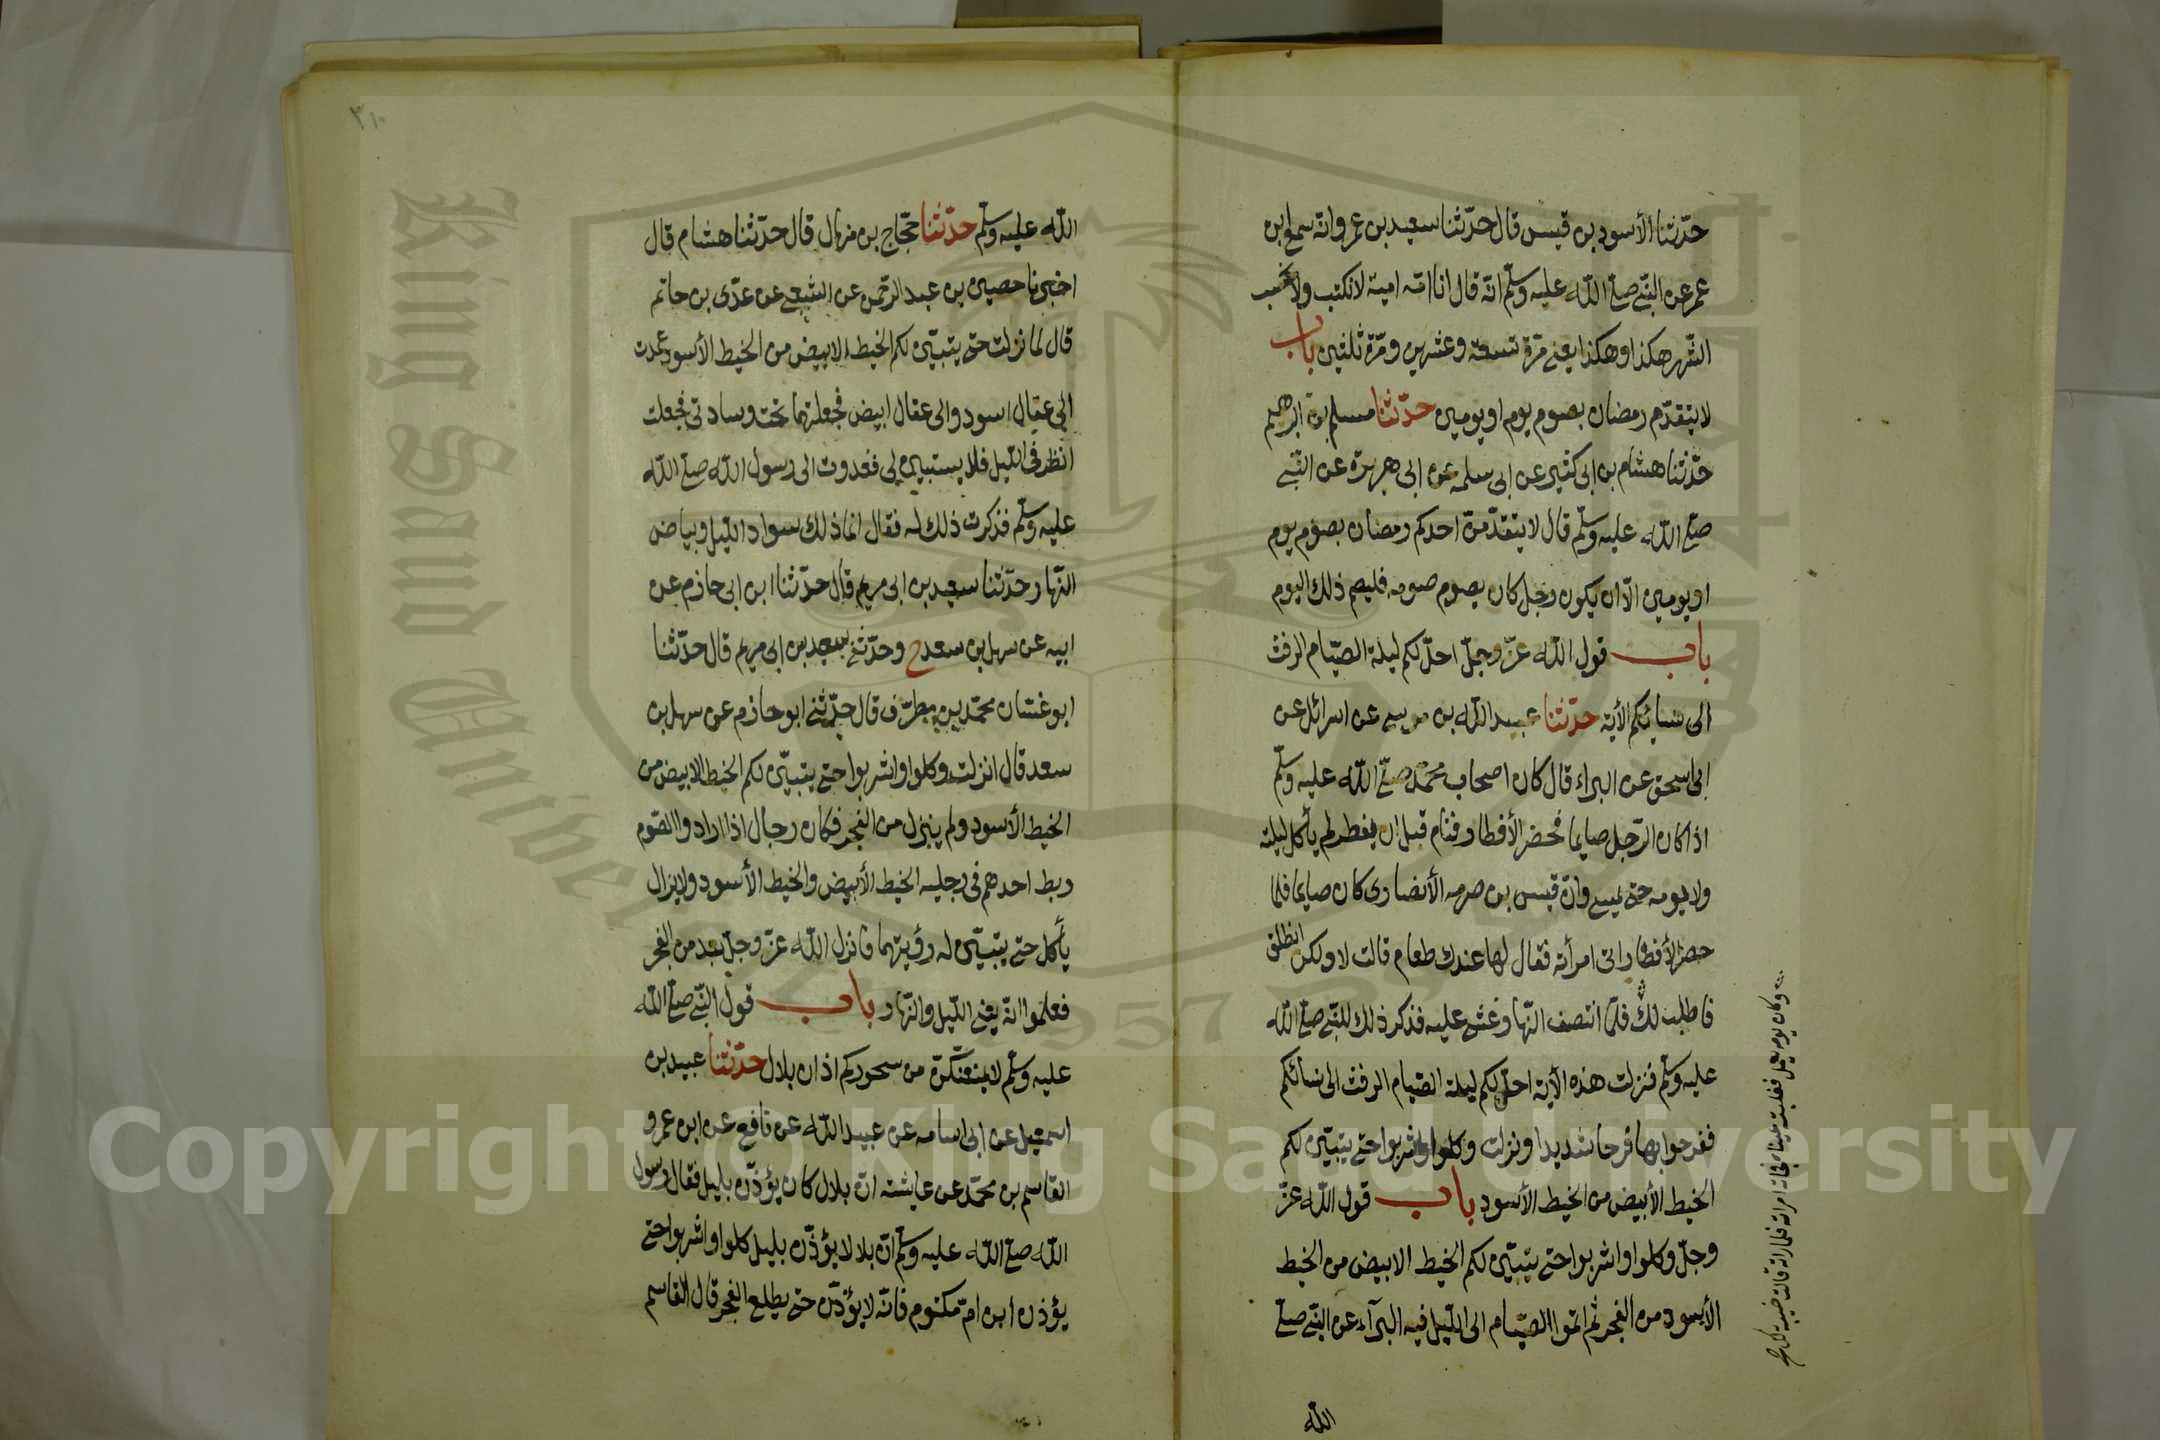 حدّثنا الأسود بن قيس قال حدّثنا سعيد بن عمرو انّه سمع ابن
عمر عن النّبيّ صلّى اللّه عليه وسلّم انّه قال انا امّة امية لا نكتب ولا نحسب
الشّهر هكذا وهكذا يعنى مرّة تسعة وعشرين ومرّة ثلثين باب
لا يتقدّم رمضان بصوم يوم او يومين حدّثنا مسلم بن ابرهيم
حدّثنا هشام بن ابى كثير عن ابى سلمه عن ابى هريرة عن النّبيّ
صلّى اللّه عليه وسلّم قال لا يتقدّمنّ احدكم رمضان بصوم يوم
او يومين الّا ان يكون رجل كان يصوم صومه فليصم ذلك اليوم
باب قول اللّه عزّ وجلّ احلّ لكم ليلة الصّيام الرفث
الى نسائكم الأية حدّثنا عبيد اللّه بن موسى عن اسرائل عن
ابى اسحق عن البراء قال كان اصحاب محمّد صلّى اللّه عليه وسلّم
اذا كان الرّجل صايما فحضر الأفطار فنام قبل ان يفطر لم يأكل ليلته
ولا يومه حتى يمسى وانّ قيس بن صرمه الأنصارى كان صايما فلما
حضر الأفطار اتى امرأته فقال لها عندك طعام قالت لا ولكن انطلق
فاطلب لك فلمّا انتصف النّهار غشى عليه فذكر ذلك للنّبيّ صلّى اللّه
عليه وسلّم فنزلت هذه الأية احلّ لكم ليلة الصّيام الرفث الى نسائكم
ففرحوا بها فرحا شديدا ونزلت وكلوا واشربوا حتى يتبيّن لكم
الخيط الأبيض من الخيط الأسود باب قول اللّه عزّ
وجلّ وكلوا واشربوا حتى يتبيّن لكم الخيط الابيض من الخيط
الأسود من الفجر ثم اتموا الصّيام الى اللّيل فيه البرآء عن النّبيّ صلّى
اللّه
وكان يومه يعمل فغلبته عيناه فجاءته امراته فلما راته قالت خيبة لك صح
٣١٠
اللّه عليه وسلّم حدّثنا حجّاج بن منهال قال حدّثنا هشام قال
اخبرنا حصين بن عبد الرّحمن عن الشّعبى عن عدّى بن حاتم
قال لما نزلت حتى يتبيّن لكم الخيط الابيض من الخيط الأسود عمدت
الى عقال اسود والى عقال ابيض فجعلتهما تحت وسادتى فجعلت
انظر فى اللّيل فلا يستبين لى فغدوت الى رسول اللّه صلّى اللّه
عليه وسلّم فذكرت ذلك له فقال انما ذلك سواد اللّيل وبياض
النّهار حدّثنا سعيد بن ابى مريم قال حدّثنا ابن ابى حازم عن
ابيه عن سهل بن سعد ح وحدّثنى سعيد بن ابى مريم قال حدّثنا
ابو غسّان محمّد بن مطرّف قال حدّثنى ابو حازم عن سهل بن
سعد قال انزلت وكلوا واشربوا حتى يتبيّن لكم الخيط الابيض من
الخيط الأسود ولم ينزل من الفجر فكان رجال اذا ارادوا الصّوم
ربط احدهم فى رجليه الخيط الأبيض والخيط الأسود ولا يزال
يأكل حتى يتبيّن له رؤيتهما فانزل اللّه عزّ وجلّ بعد من الفجر
فعلموا انّه يعنى اللّيل والنّهار باب قول النّبيّ صلّى اللّه
عليه وسلّم لا يمنعنّكم من سحوركم اذان بلال حدّثنا عبيد بن
اسمعيل عن ابى اسامه عن عبيد اللّه عن نافع عن ابن عمر و
القاسم بن محمّد عن عايشة انّ بلال كان يؤذّن بليل فقال رسول
اللّه صلّى اللّه عليه وسلّم انّ بلالا يؤذّن بليل كلوا واشربوا حتى
يؤذن ابن امّ مكتوم فانّه لا يؤذّن حتى يطلع الفجر قال القاسم
King Saud University
1957
Copyright © King Saud University